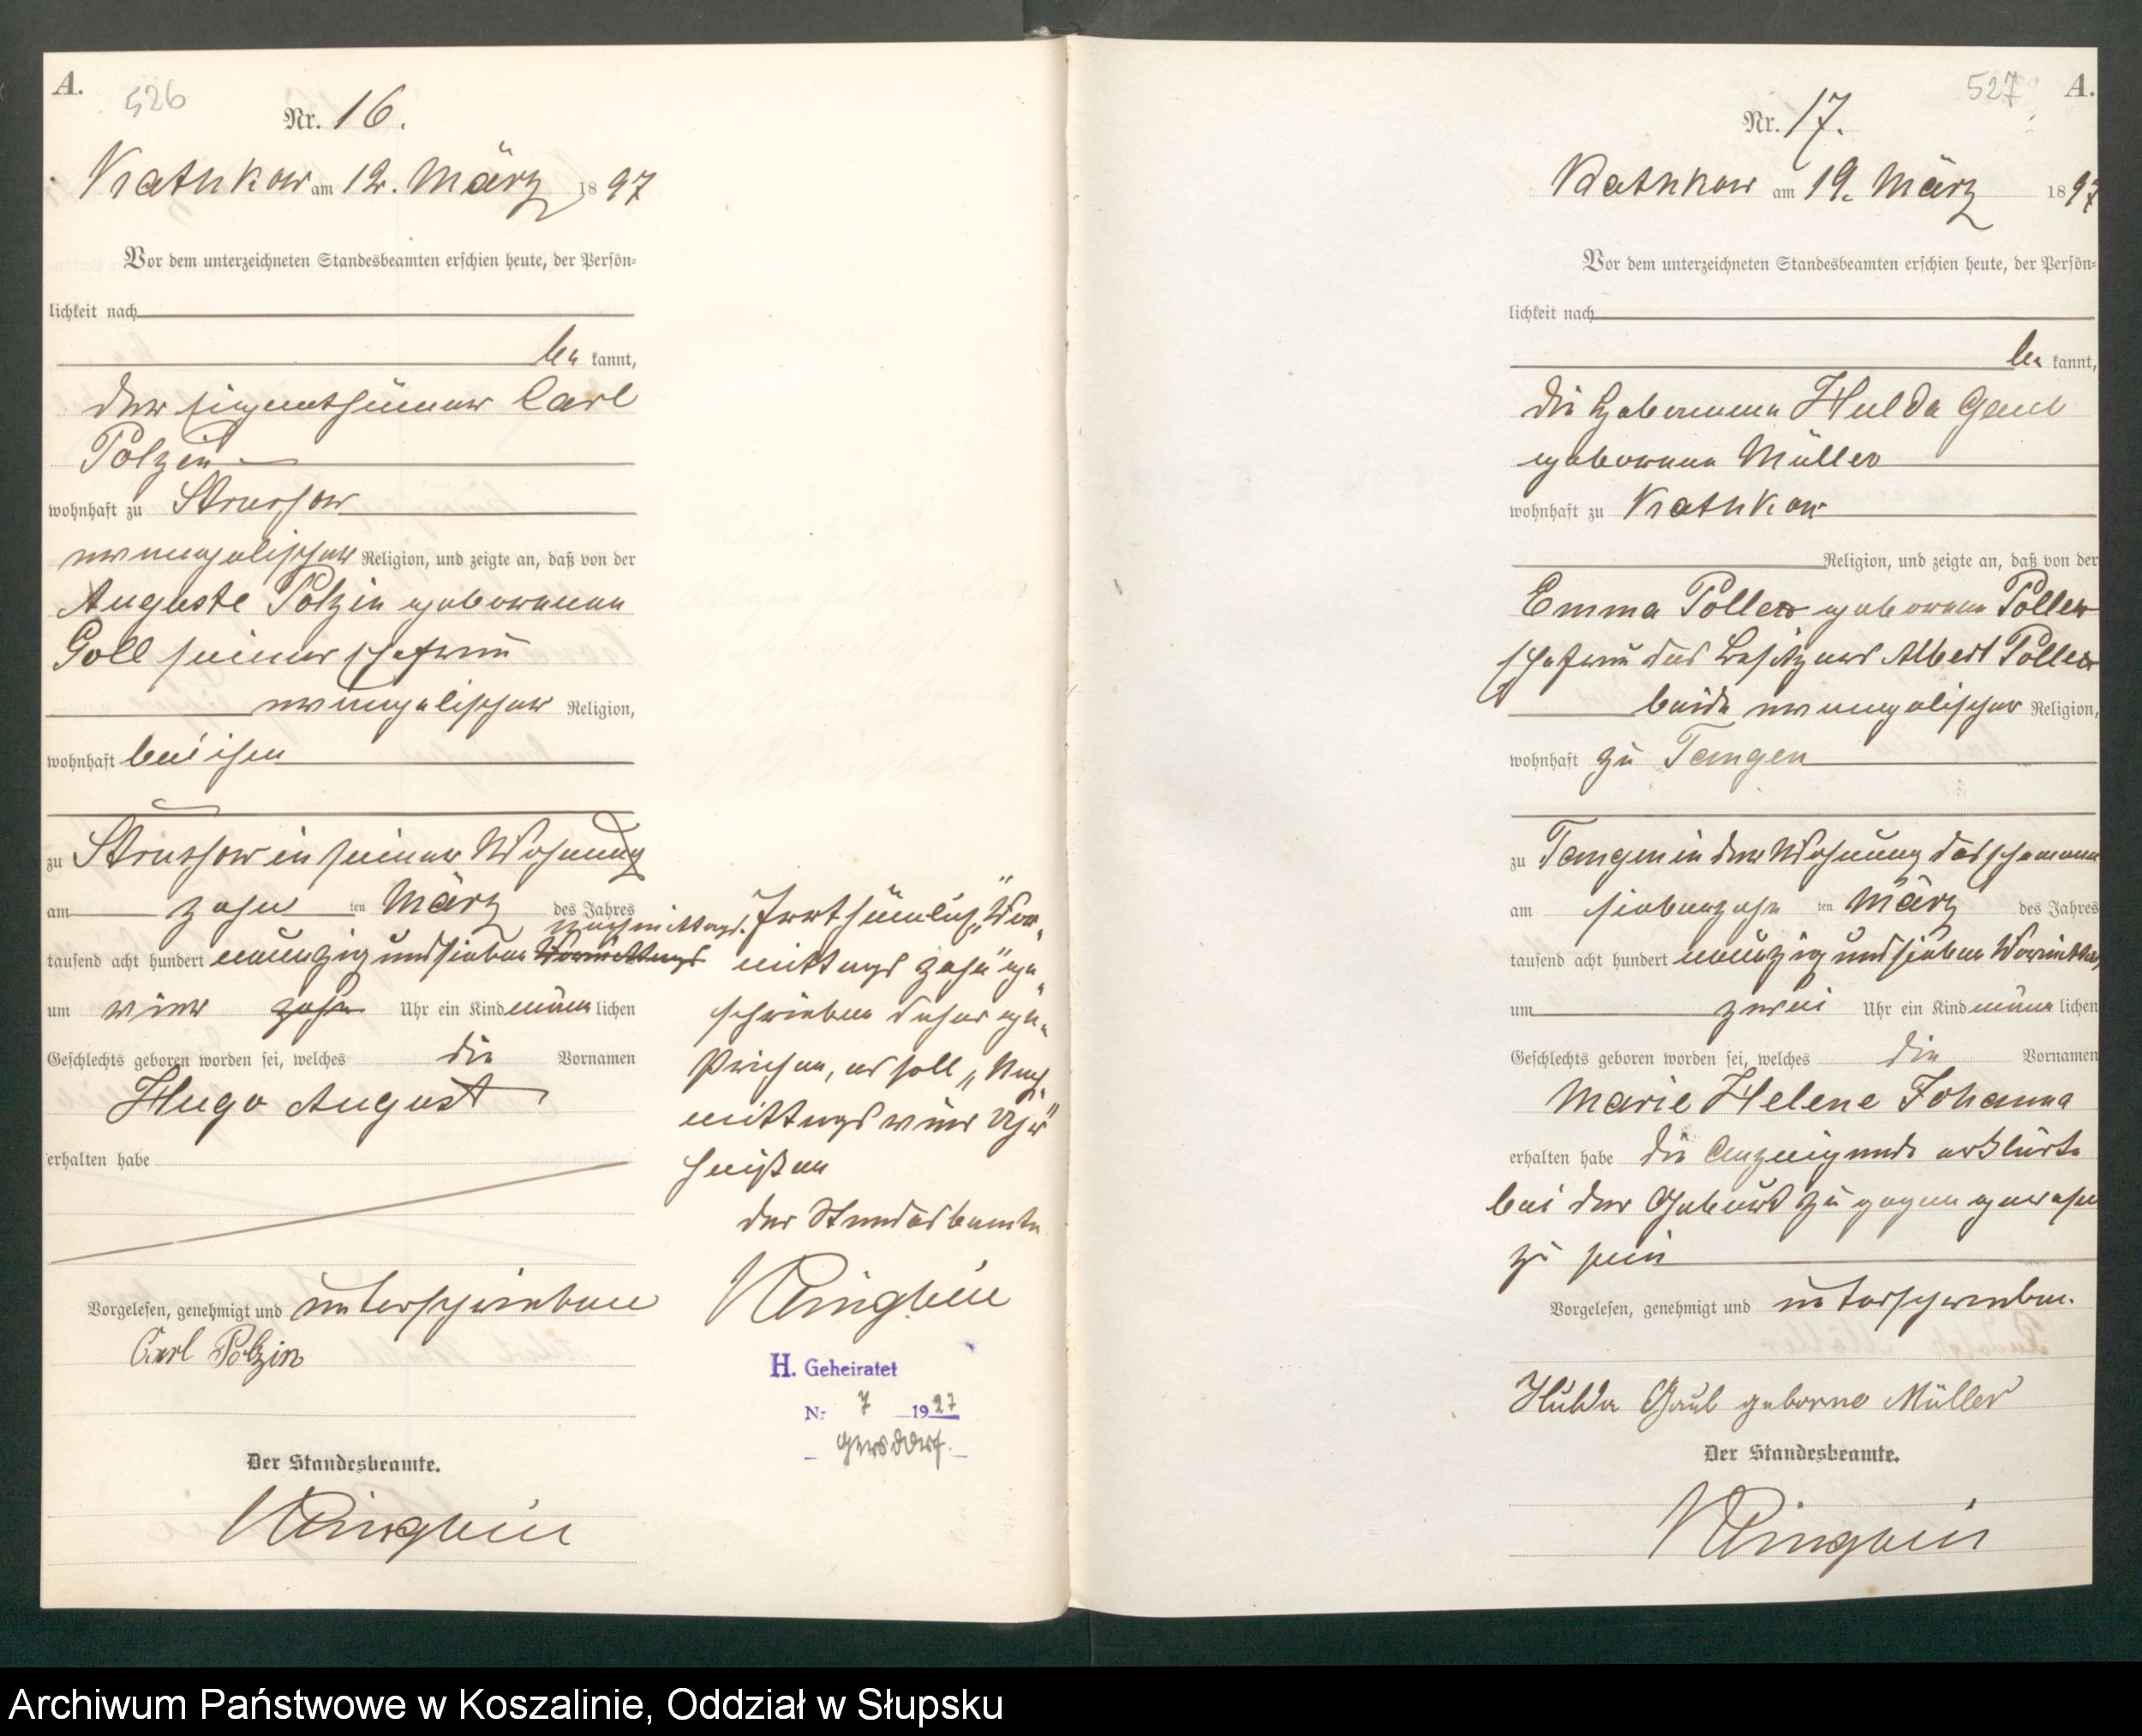 A.
526
Nr. 16.
Kathkow am 12. März 1897
Vor dem unterzeichneten Standesbeamten erschien heute, der Persön-
lichkeit nach
be kannt,
der Eigenthümer Carl
Polzin
wohnhaft zu Strussow
evangelischer Religion, und zeigte an, daß von der
Auguste Polzin geborenen
Goll seiner Ehefrau
evangelischer Religion,
wohnhaft bei ihm
zu Strussow in seiner Wohnung
am zehn ten März des Jahres
nachmittags
tausend acht hundert neunzig und sieben Vormittags
um vier zehn Uhr ein Kind männ lichen
Geschlechts geboren worden sei, welches die Vornamen
Hugo August
erhalten habe
Vorgelesen, genehmigt und unterschrieben
Carl Polzin
Der Standesbeamte.
Irrthümlich „Vor-
mittags zehn“ ge-
schrieben daher ge-
strichen, es soll „Nach-
mittags vier Uhr“
heißen
Der Standesbeamte
H. Geheiratet
Nr 7 1927
Gersdorf.
527
A.
Nr. 17.
Kathkow am 19. März 1897
Vor dem unterzeichneten Standesbeamten erschien heute, der Persön-
lichkeit nach
be kannt,
die Hebamme Hulda Gaul
geborene Müller
wohnhaft zu Kathkow
Religion, und zeigte an, daß von der
Emma Poller geborene Poller
Ehefrau des Besitzers Albert Poller
beide evangelischer Religion,
wohnhaft zu Tangen
zu Tangen in der Wohnung des Ehemann
am siebenzehn ten März des Jahres
tausend acht hundert neunzig und sieben Vormittags
um zwei Uhr ein Kind männ lichen
Geschlechts geboren worden sei, welches die Vornamen
Marie Helene Johanna
erhalten habe die Anzeigende erklärte
bei der Geburt zu gegen gewesen
zu sein
Vorgelesen, genehmigt und unterschrieben.
Hulda Gaul geborne Müller
Der Standesbeamte.
Archiwum Państwowe w Koszalinie, Oddział w Słupsku